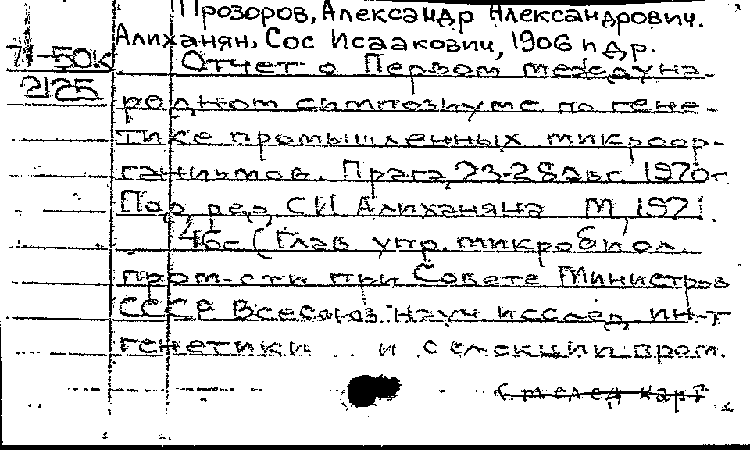 Прозоров, Александр Александрович.
Алиханян, Сос Исаакович, 1906 и др.
71-50к Отчет о Первом междуна-
2125 родном симпозиуме по гене-
тике промышленных микроор-
ганизмов. Прага, 23-28 авг. 1970г
Под ред. СИ Алиханяна М, 1971.
46с (Глав упр. микробиол.
пром-сти при Совете Министров
СССР Всесоюз. науч исслед, ин-т
генетики и селекции пром.
(см след карт